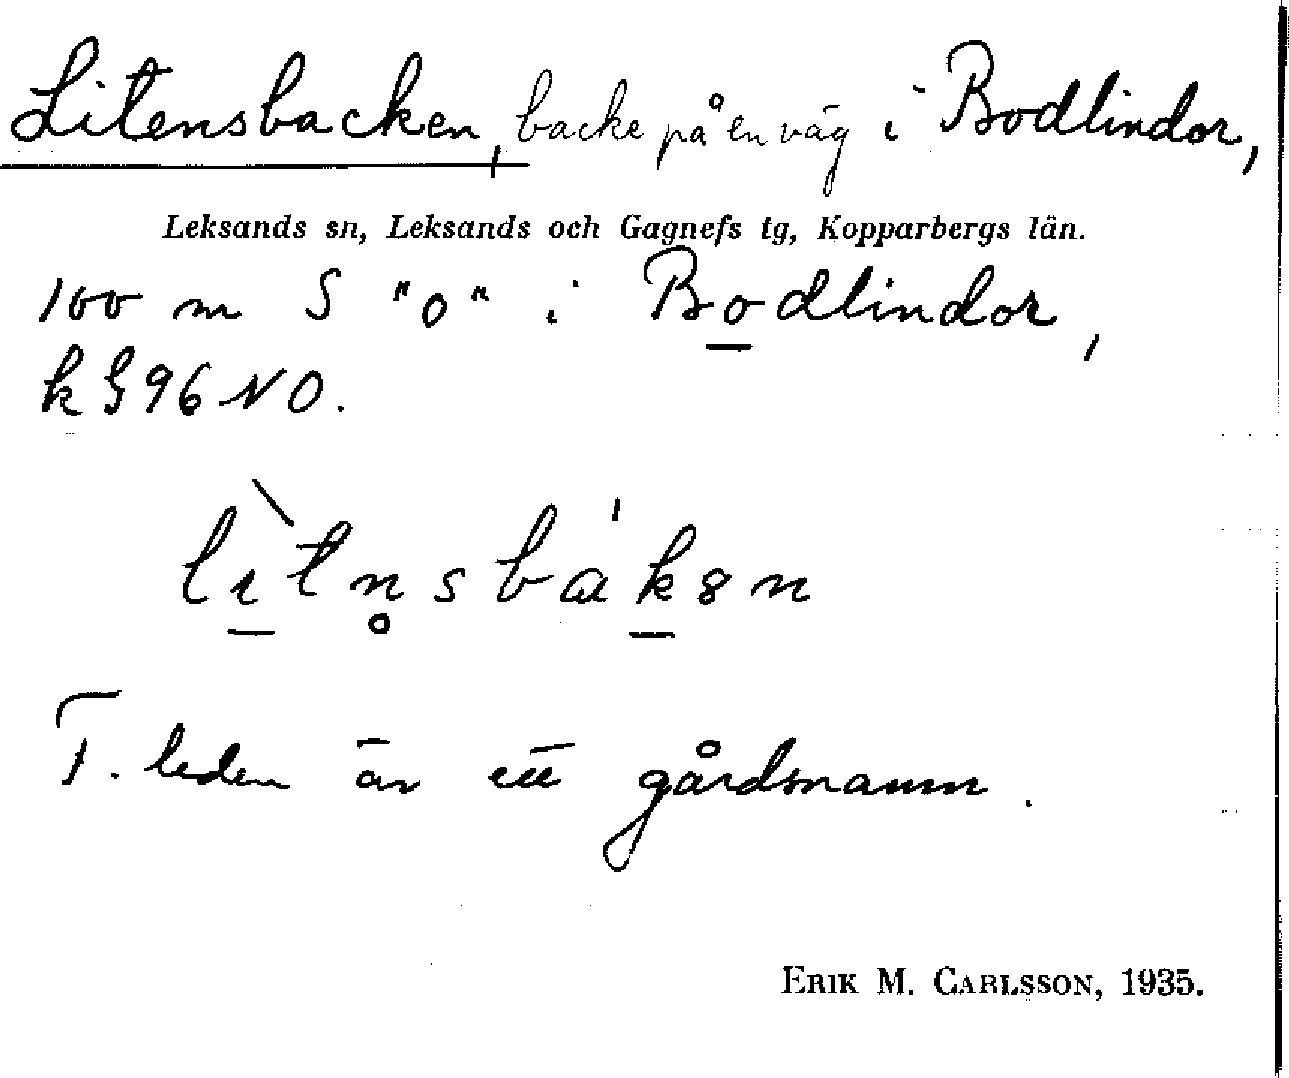 Litensbacken, backe på en väg i Bodlindor,
Leksands sn, Leksands och Gagnefs tg, Kopparbergs län.
100 m S "o" i Bodlindor,
k § 96 NO.
lìtn̥sbák8n
F. leden är ett gårdsnamn.
ERIK M. CARLSSON, 1935.